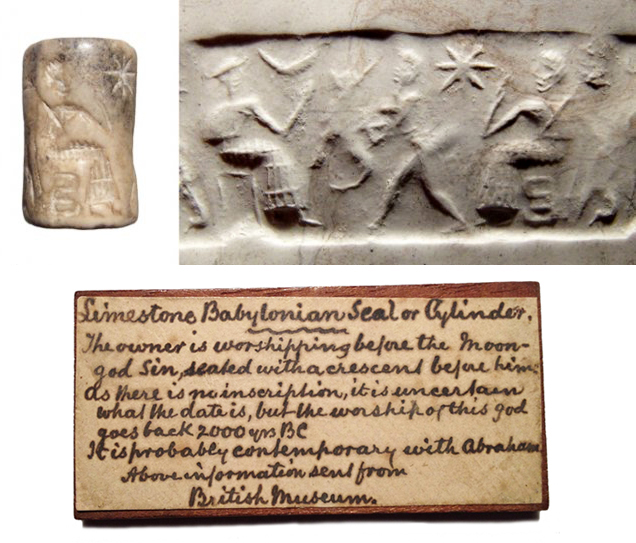 Limestone Babylonian Seal or Cylinder.
The owner is worshipping before the Moon-
god Sin, seated with a crescent before him.
As there is no inscription, it is uncertain
what the date is, but the worship of this god
goes back 2000 yrs BC
It is probably contemporary with Abraham
Above information sent from
British Museum.